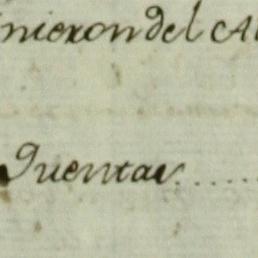 nieron del Al
Quentas.....